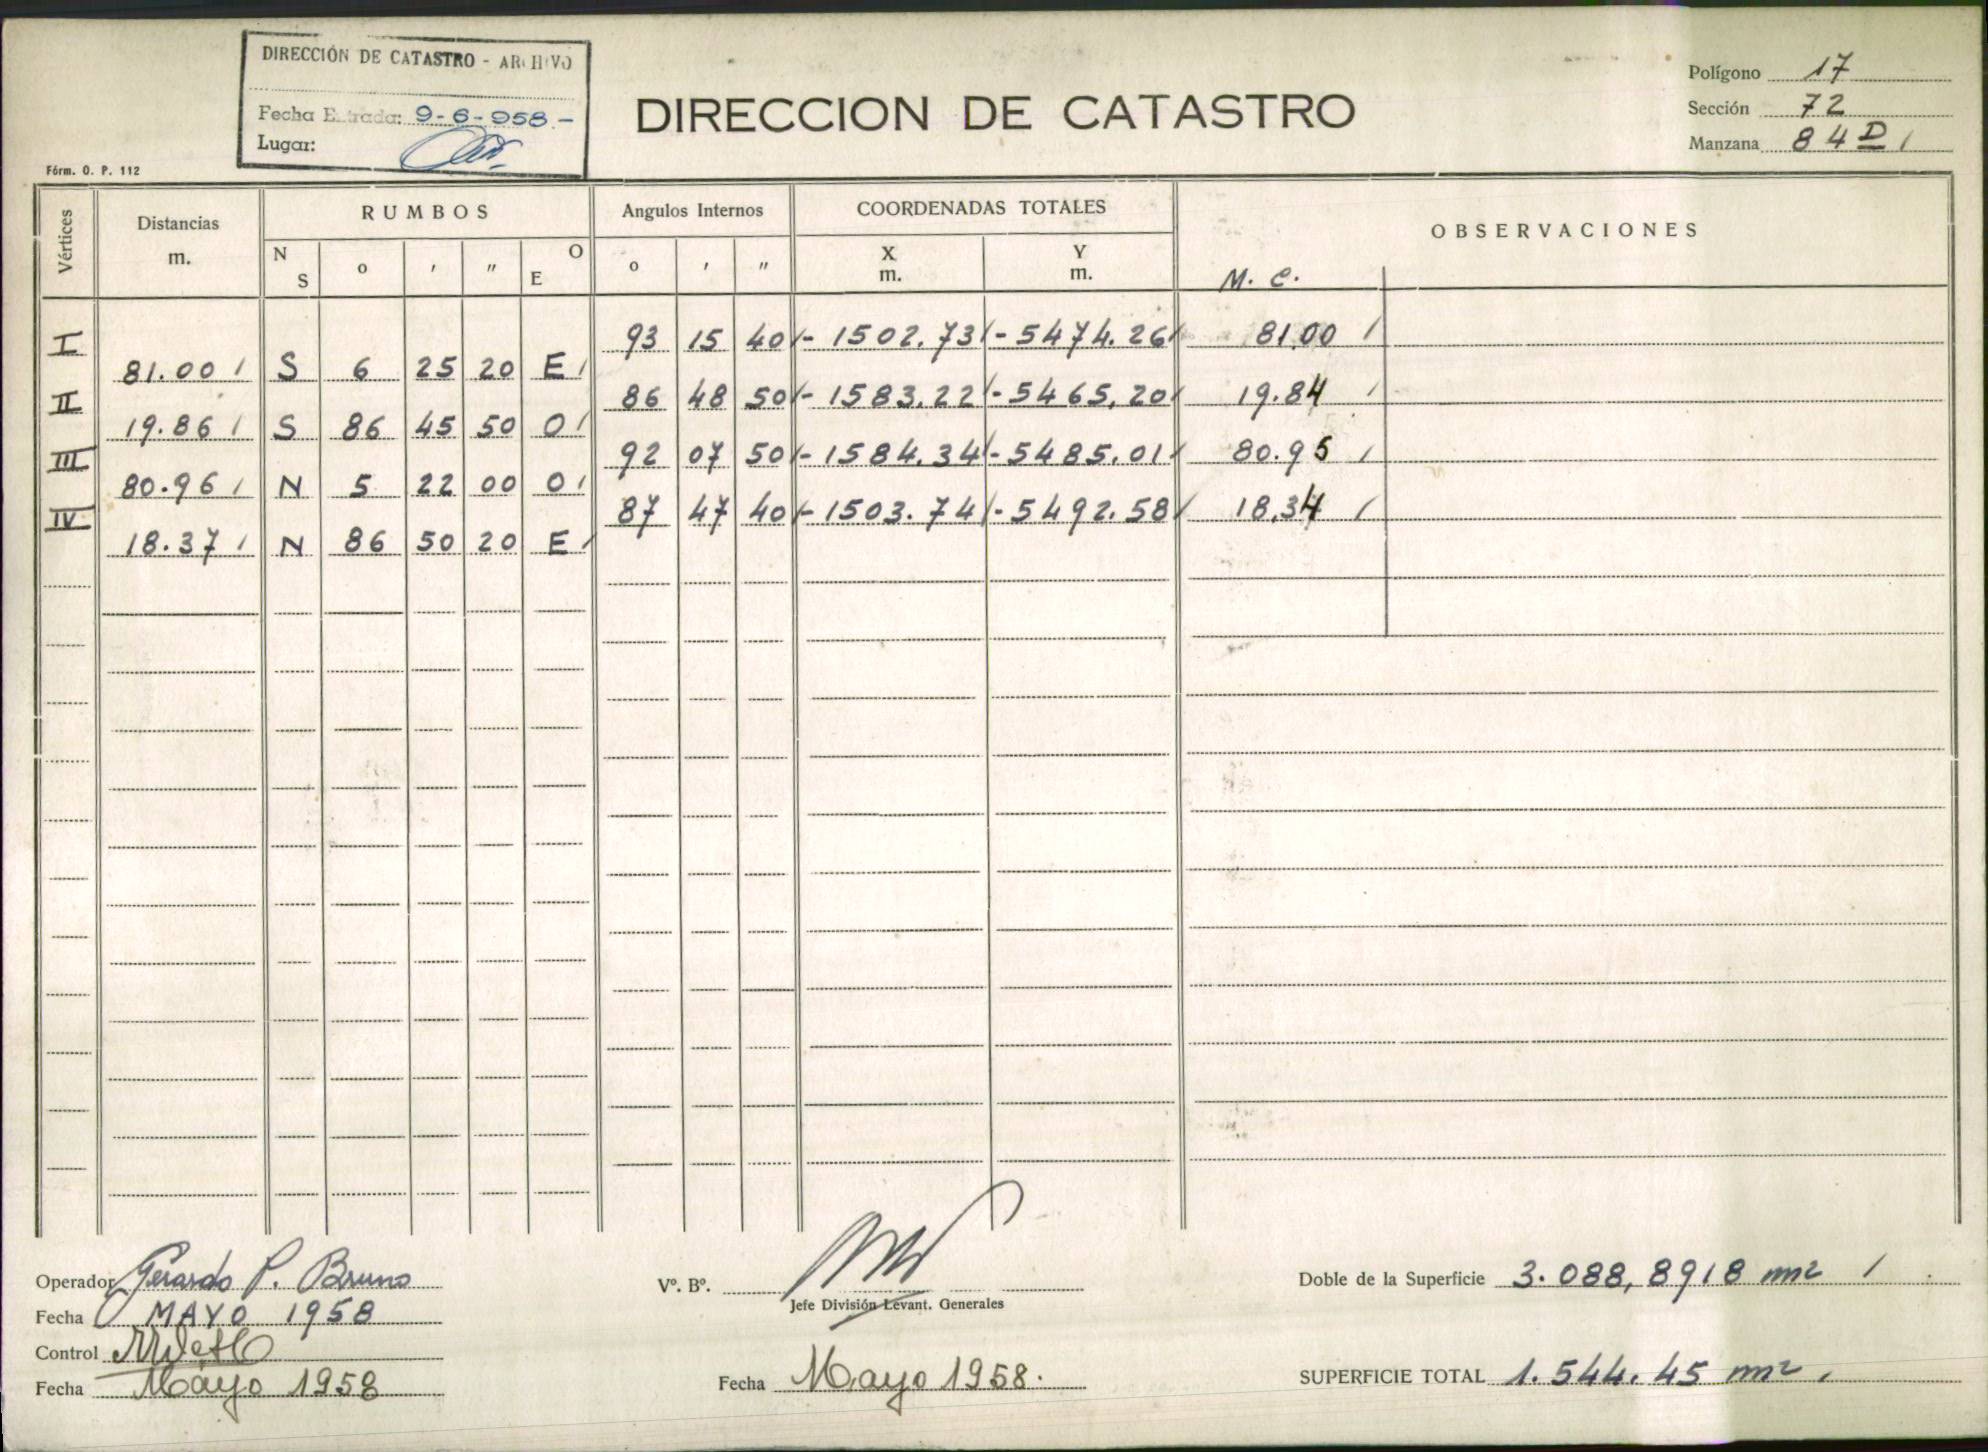 DIRECCIÓN DE CATASTRO - ARCHIVO
Fecha Entrada: 9-6-958.-
Lugar:
DIRECCION DE CATASTRO
Polígono 17
Sección 72
Manzana 84 D /
Fórm. O. P. 112
Vértices Distancias m. RUMBOS Angulos Internos COORDENADAS TOTALES OBSERVACIONES
N S o ' " O E o ' " X m. Y m. M. C.
I 93 15 40 - 1502.73 - 5474.26 81.00
81.00 S 6 25 20 E
II 86 48 50 - 1583.22 - 5465.20 19.84
19.86 S 86 45 50 O
III 92 07 50 - 1584.34 - 5485.01 80.95
80.96 N 5 22 00 O
IV 87 47 40 - 1503.74 - 5492.58 18.34
18.37 N 86 50 20 E
Operador Gerardo P. Bruno
Fecha MAYO 1958
Control
Fecha Mayo 1958
Vº. Bº.
Jefe División Levant. Generales
Fecha Mayo 1958.
Doble de la Superficie 3.088,8918 m2
SUPERFICIE TOTAL 1.544.45 m2